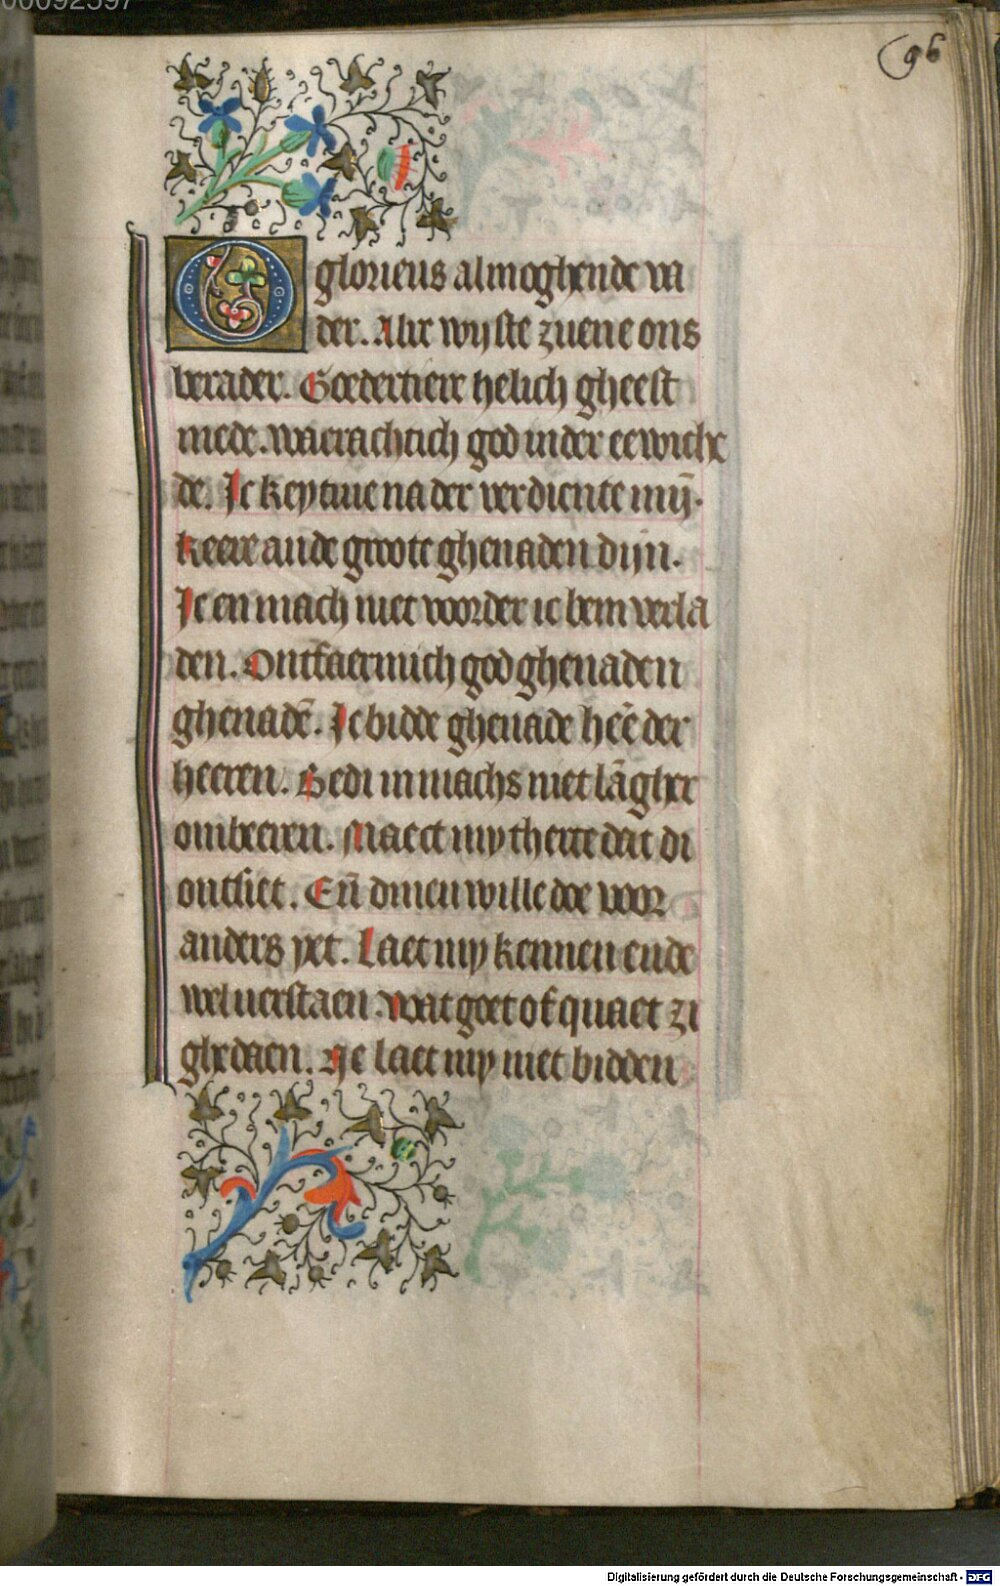 96
O glorieus almoghende va
der. Alre wijste zuene ons
berader. Goedertiere helich gheest
mede. waerachtich god inder eewiche
de. Ic keytiue na der verdiente mij.
keere an de groote ghenaden dijn.
Ic en mach niet voorder ic bem verla
den. Ontfaermich god ghenaden
ghenadē. Ic bidde ghenade heē der
heeren. Bedi in machs niet lāgher
ombeeren. Maect my therte dat di
ontsiet. Eñ dinen wille doe voor
anders yet. Laet my kennen ende
wel uerstaen. wat goet of quaet zi
ghedaen. Ne laet my niet bidden
Digitalisierung gefördert durch die Deutsche Forschungsgemeinschaft - DFG